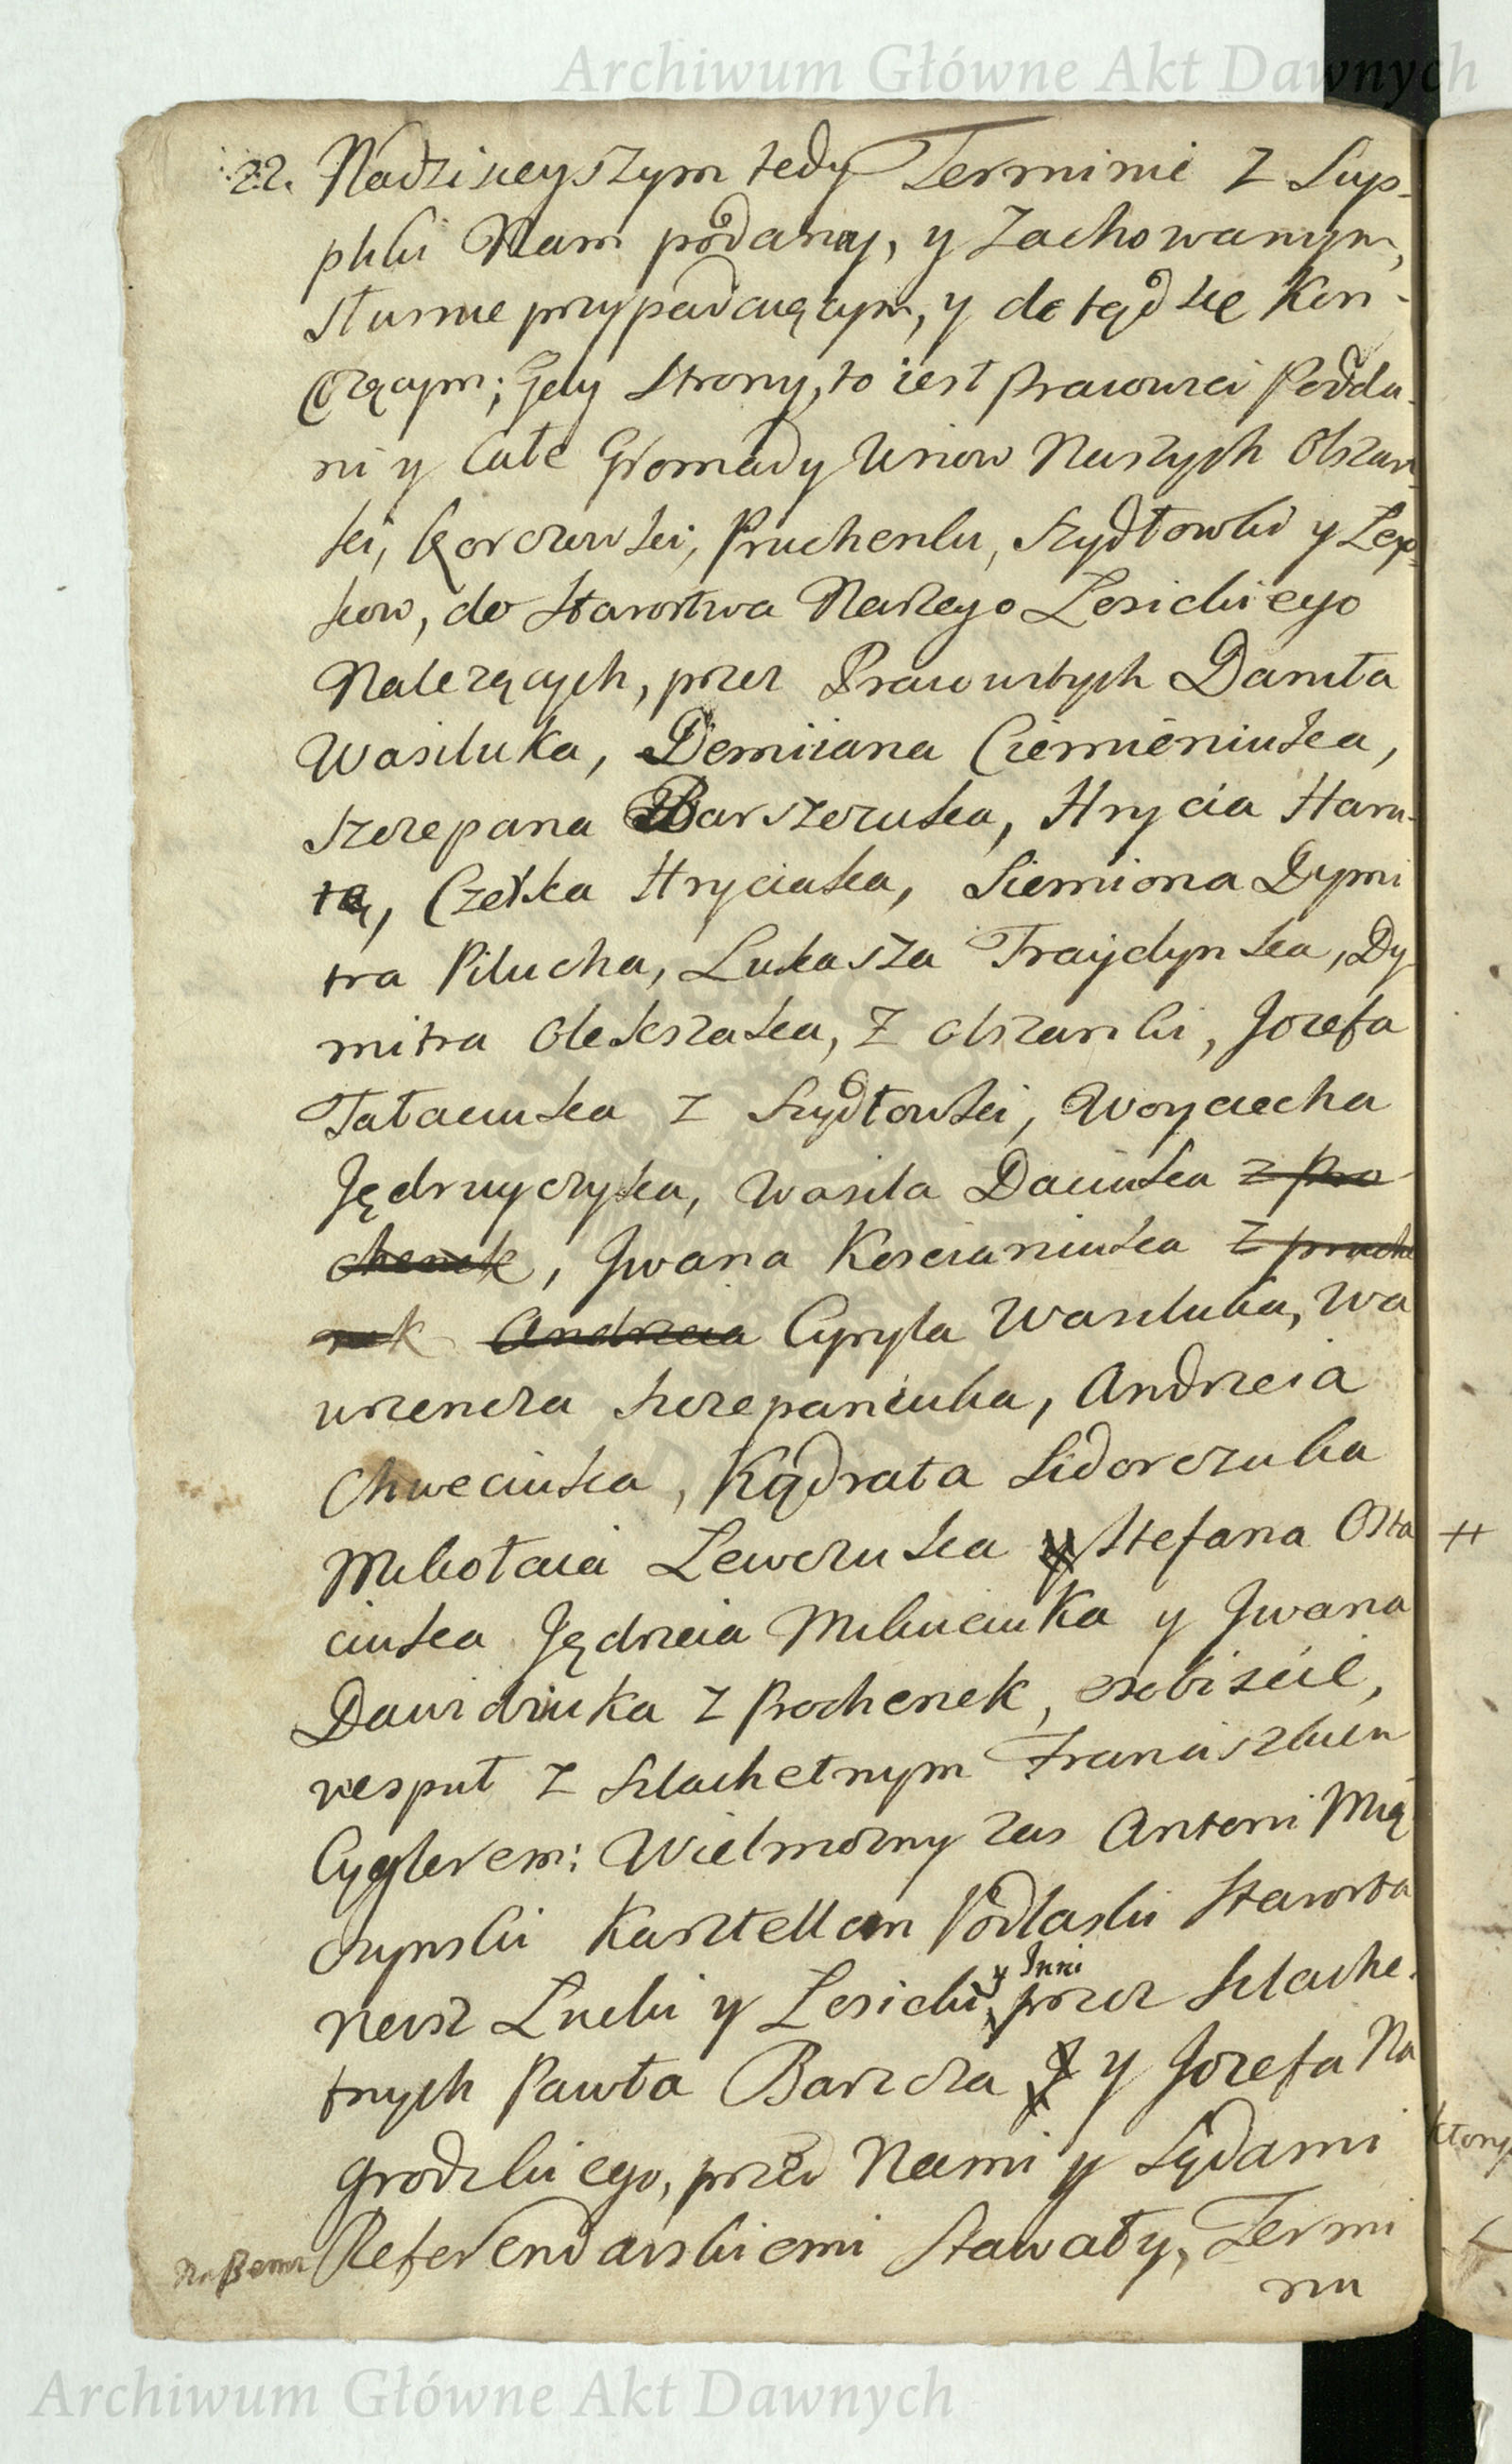 Archiwum Główne Akt Dawnych
22. Nadzisieyszym tedy Terminie z Sup-
pliki Nam podaney, y zachowanym,
słusznie przypadaiącym, y dotąd się Kon-
czącym; Gdy Strony, to iest Pracowici Podda-
ni y Całe Gromady Wsiow Naszych Olszan-
ki, Korczowki, Pruchenku, Szydłowki y Łep-
kow, do Starostwa Naszego Łosickiego
Należących, przez Pracowitych Daniła
Wasiluka, Demiiana Ciemieniuka,
Szczepana Barszczuka, Hrycia Haru-
tę, Hryciuka, Siemiona Dymi
tra Pilucha, Łukasza Traydynka, Dy-
mitra Olekszaka, z Olszanki, Jozefa
Tataciuka z Szydłowki, Woyciecha
Jędruyczyka, Wasila Daciuka z Pro
chenek, Jwana Koscianiuka z pruche
nek Andrzeia Cyryla Wasiluka, Wa
wrzenca Szczepaniuka, Andrzeia
Chweciuka, Kądrata Sidorczuka
Mikołaia Lewczuka y Stefana Osta #
ciuka Jędrzeia Mikiciuka y Jwana
Dawidziuka z Prochenek, osobiscie,
wespuł z Szlachetnym Franciszkiem
Cyglerem: Wielmożny zas Antoni Mią
czynski Kasztellan Podlaski Starosta
Nasz Łucki y Łosicki y Inni przez Szlache-
tnych Pawła Barszcza y Jozefa Na
grodzkiego, przed Nami y Sądami
Naszemi Referendarskiemi Stawały, Termi
nu
Archiwum Główne Akt Dawnych